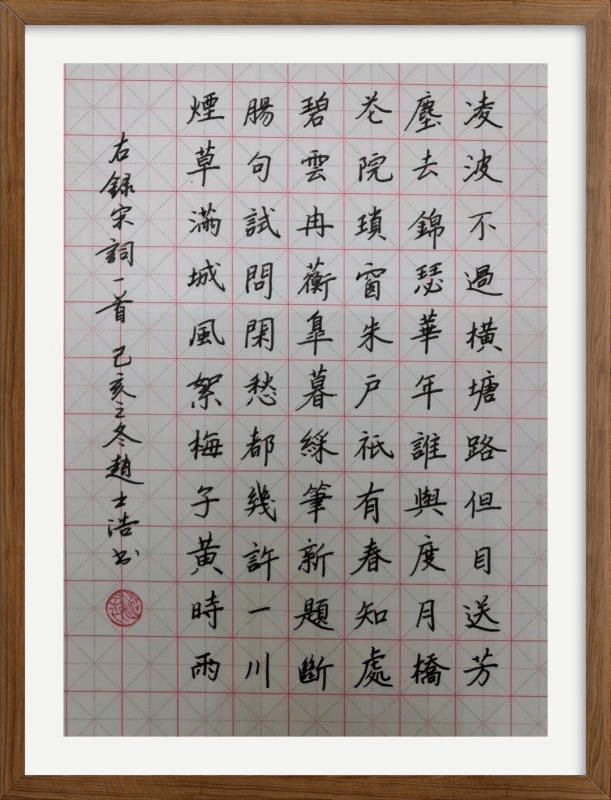 凌波不過橫塘路但目送芳
塵去錦瑟華年誰與度月橋
花院瑣窗朱戶祇有春知處
碧雲冉蘅皐暮綵筆新題斷
腸句試問閑愁都幾許一川
煙草滿城風絮梅子黃時雨
右錄宋詞一首己亥之冬趙士浩書